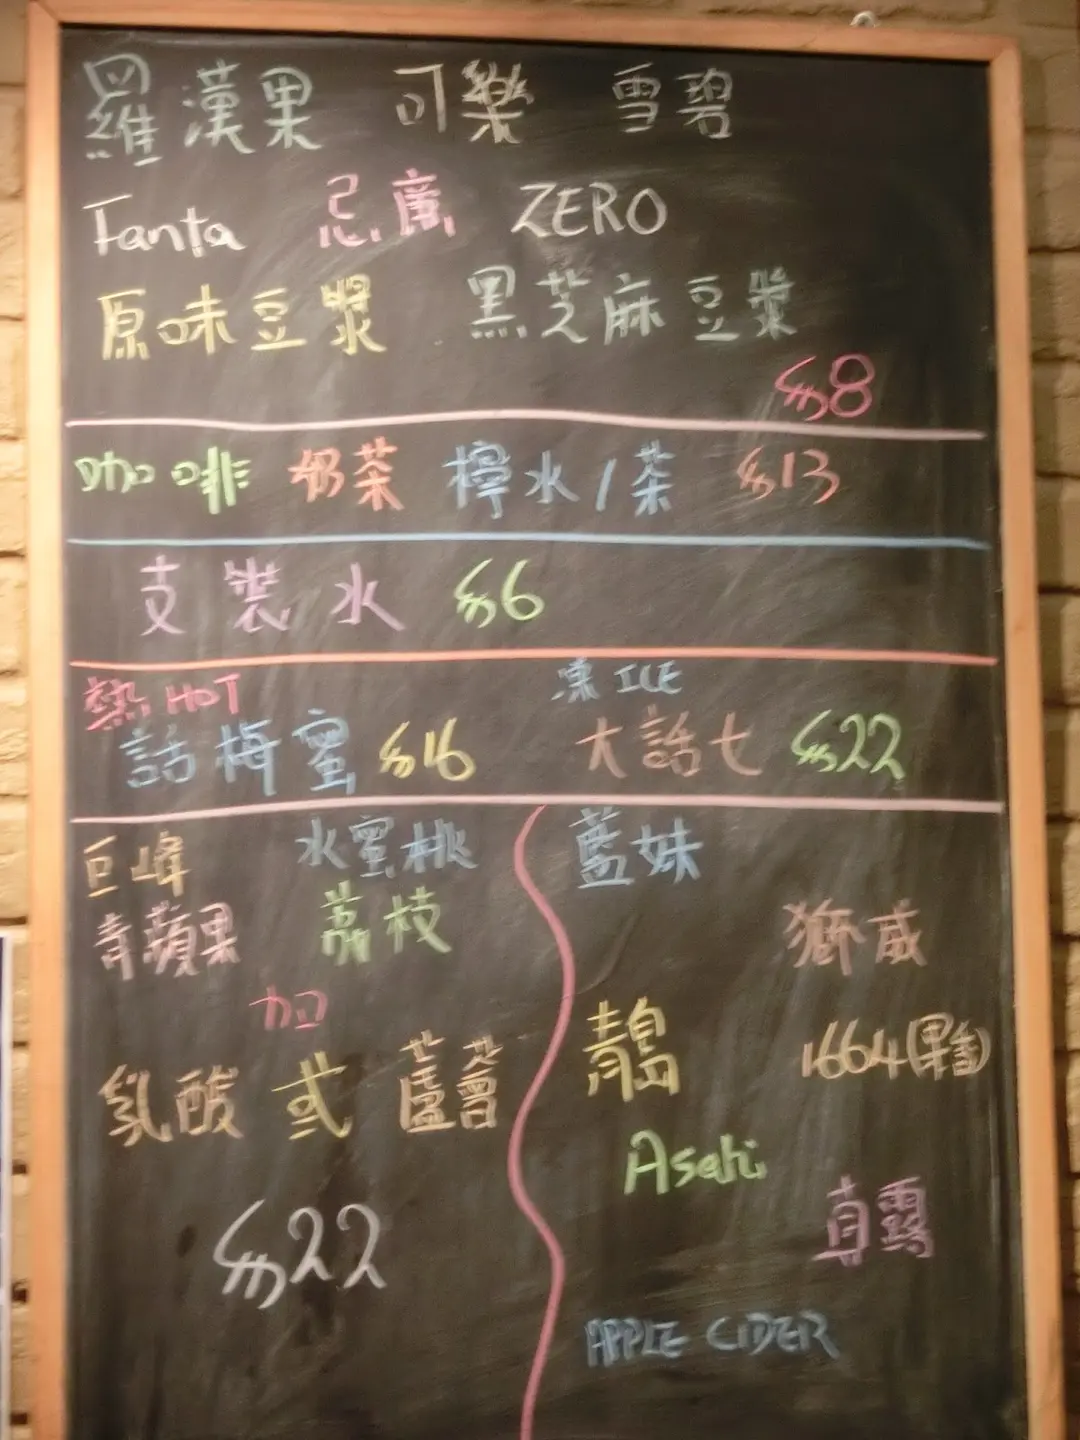 羅漢果 可樂 雪碧
Fanta 忌廉 ZERO
原味豆漿 黑芝麻豆漿
$8
咖啡 奶茶 檸水/茶 $13
支裝水 $6
熱 HOT 凍 ICE
話梅蜜 $16 大話七 $22
巨峰 水蜜桃
青蘋果 荔枝
加
乳酸 或 蘆薈
$22
藍妹
獅威
青島
1664(果香)
Asahi
真露
APPLE CIDER